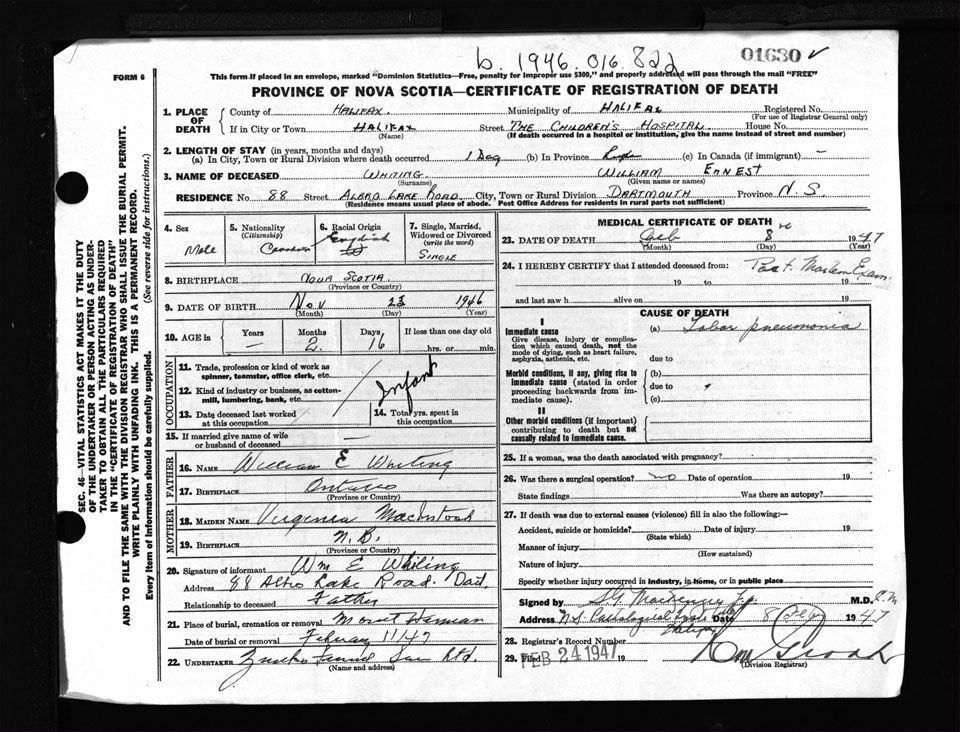 b. 1946. 016. 822
01630 ✓
FORM 6
This form if placed in an envelope, marked "Dominion Statistics—Free, penalty for improper use $300," and properly addressed will pass through the mail "FREE"
PROVINCE OF NOVA SCOTIA—CERTIFICATE OF REGISTRATION OF DEATH
SEC. 46—VITAL STATISTICS ACT MAKES IT THE DUTY
OF THE UNDERTAKER OR PERSON ACTING AS UNDER-
TAKER TO OBTAIN ALL THE PARTICULARS REQUIRED
IN THE "CERTIFICATE OF REGISTRATION OF DEATH"
AND TO FILE THE SAME WITH THE DIVISION REGISTRAR WHO SHALL ISSUE THE BURIAL PERMIT.
WRITE PLAINLY WITH UNFADING INK. THIS IS A PERMANENT RECORD.
Every item of information should be carefully supplied. (See reverse side for instructions.)
1. PLACE OF DEATH
County of HALIFAX Municipality of HALIFAX Registered No.
(For use of Registrar General only)
If in City or Town HALIFAX Street THE CHILDREN'S HOSPITAL House No.
(Name) (If death occurred in a hospital or institution, give the name instead of street and number)
2. LENGTH OF STAY (in years, months and days)
(a) In City, Town or Rural Division where death occurred 1 Day (b) In Province Life (c) In Canada (if immigrant) —
3. NAME OF DECEASED WHITING WILLIAM ERNEST
(Surname) (Given name or names)
RESIDENCE No. 88 Street ALBRO LAKE ROAD City, Town or Rural Division DARTMOUTH Province N.S.
(Residence means usual place of abode. Post Office Address for residents in rural parts not sufficient)
4. Sex Male
5. Nationality (Citizenship) Canadian
6. Racial Origin English
7. Single, Married, Widowed or Divorced (write the word) SINGLE
8. BIRTHPLACE NOVA SCOTIA
(Province or Country)
9. DATE OF BIRTH Nov 23 1946
(Month) (Day) (Year)
10. AGE in Years — Months 2 Days 16 If less than one day old hrs. or min.
OCCUPATION
11. Trade, profession or kind of work as spinner, teamster, office clerk, etc.
12. Kind of industry or business, as cotton-mill, lumbering, bank, etc.
Infant
13. Date deceased last worked at this occupation
14. Total yrs. spent in this occupation
15. If married give name of wife or husband of deceased —
FATHER
16. NAME William E Whiting
17. BIRTHPLACE Ontario
(Province or Country)
MOTHER
18. MAIDEN NAME Virginia MacIntosh
19. BIRTHPLACE N.B.
(Province or Country)
20. Signature of informant Wm E Whiting
Address 88 Albro Lake Road. Dart
Relationship to deceased Father
21. Place of burial, cremation or removal Mount Herman
Date of burial or removal 11/47
22. UNDERTAKER Ltd.
(Name and address)
MEDICAL CERTIFICATE OF DEATH
23. DATE OF DEATH Feb 8 1947
(Month) (Day) (Year)
24. I HEREBY CERTIFY that I attended deceased from: Post Mortem Exam.
19 to 19
and last saw h alive on 19
CAUSE OF DEATH
I
Immediate cause
Give disease, injury or complication which caused death, not the mode of dying, such as heart failure, asphyxia, asthenia, etc.
(a) Lobar pneumonia
due to
Morbid conditions, if any, giving rise to immediate cause (stated in order proceeding backwards from immediate cause).
(b)
due to
(c)
II
Other morbid conditions (if important) contributing to death but not causally related to immediate cause.
25. If a woman, was the death associated with pregnancy?
26. Was there a surgical operation? no Date of operation 19
State findings Was there an autopsy?
27. If death was due to external causes (violence) fill in also the following:—
Accident, suicide or homicide? Date of injury 19
(State which)
Manner of injury
(How sustained)
Nature of injury
Specify whether injury occurred in industry, in home, or in public place
Signed by M.D.
Address N.S. Pathological Halifax 8 Feb 1947
28. Registrar's Record Number
29. Filed FEB 24 1947 19
(Division Registrar)